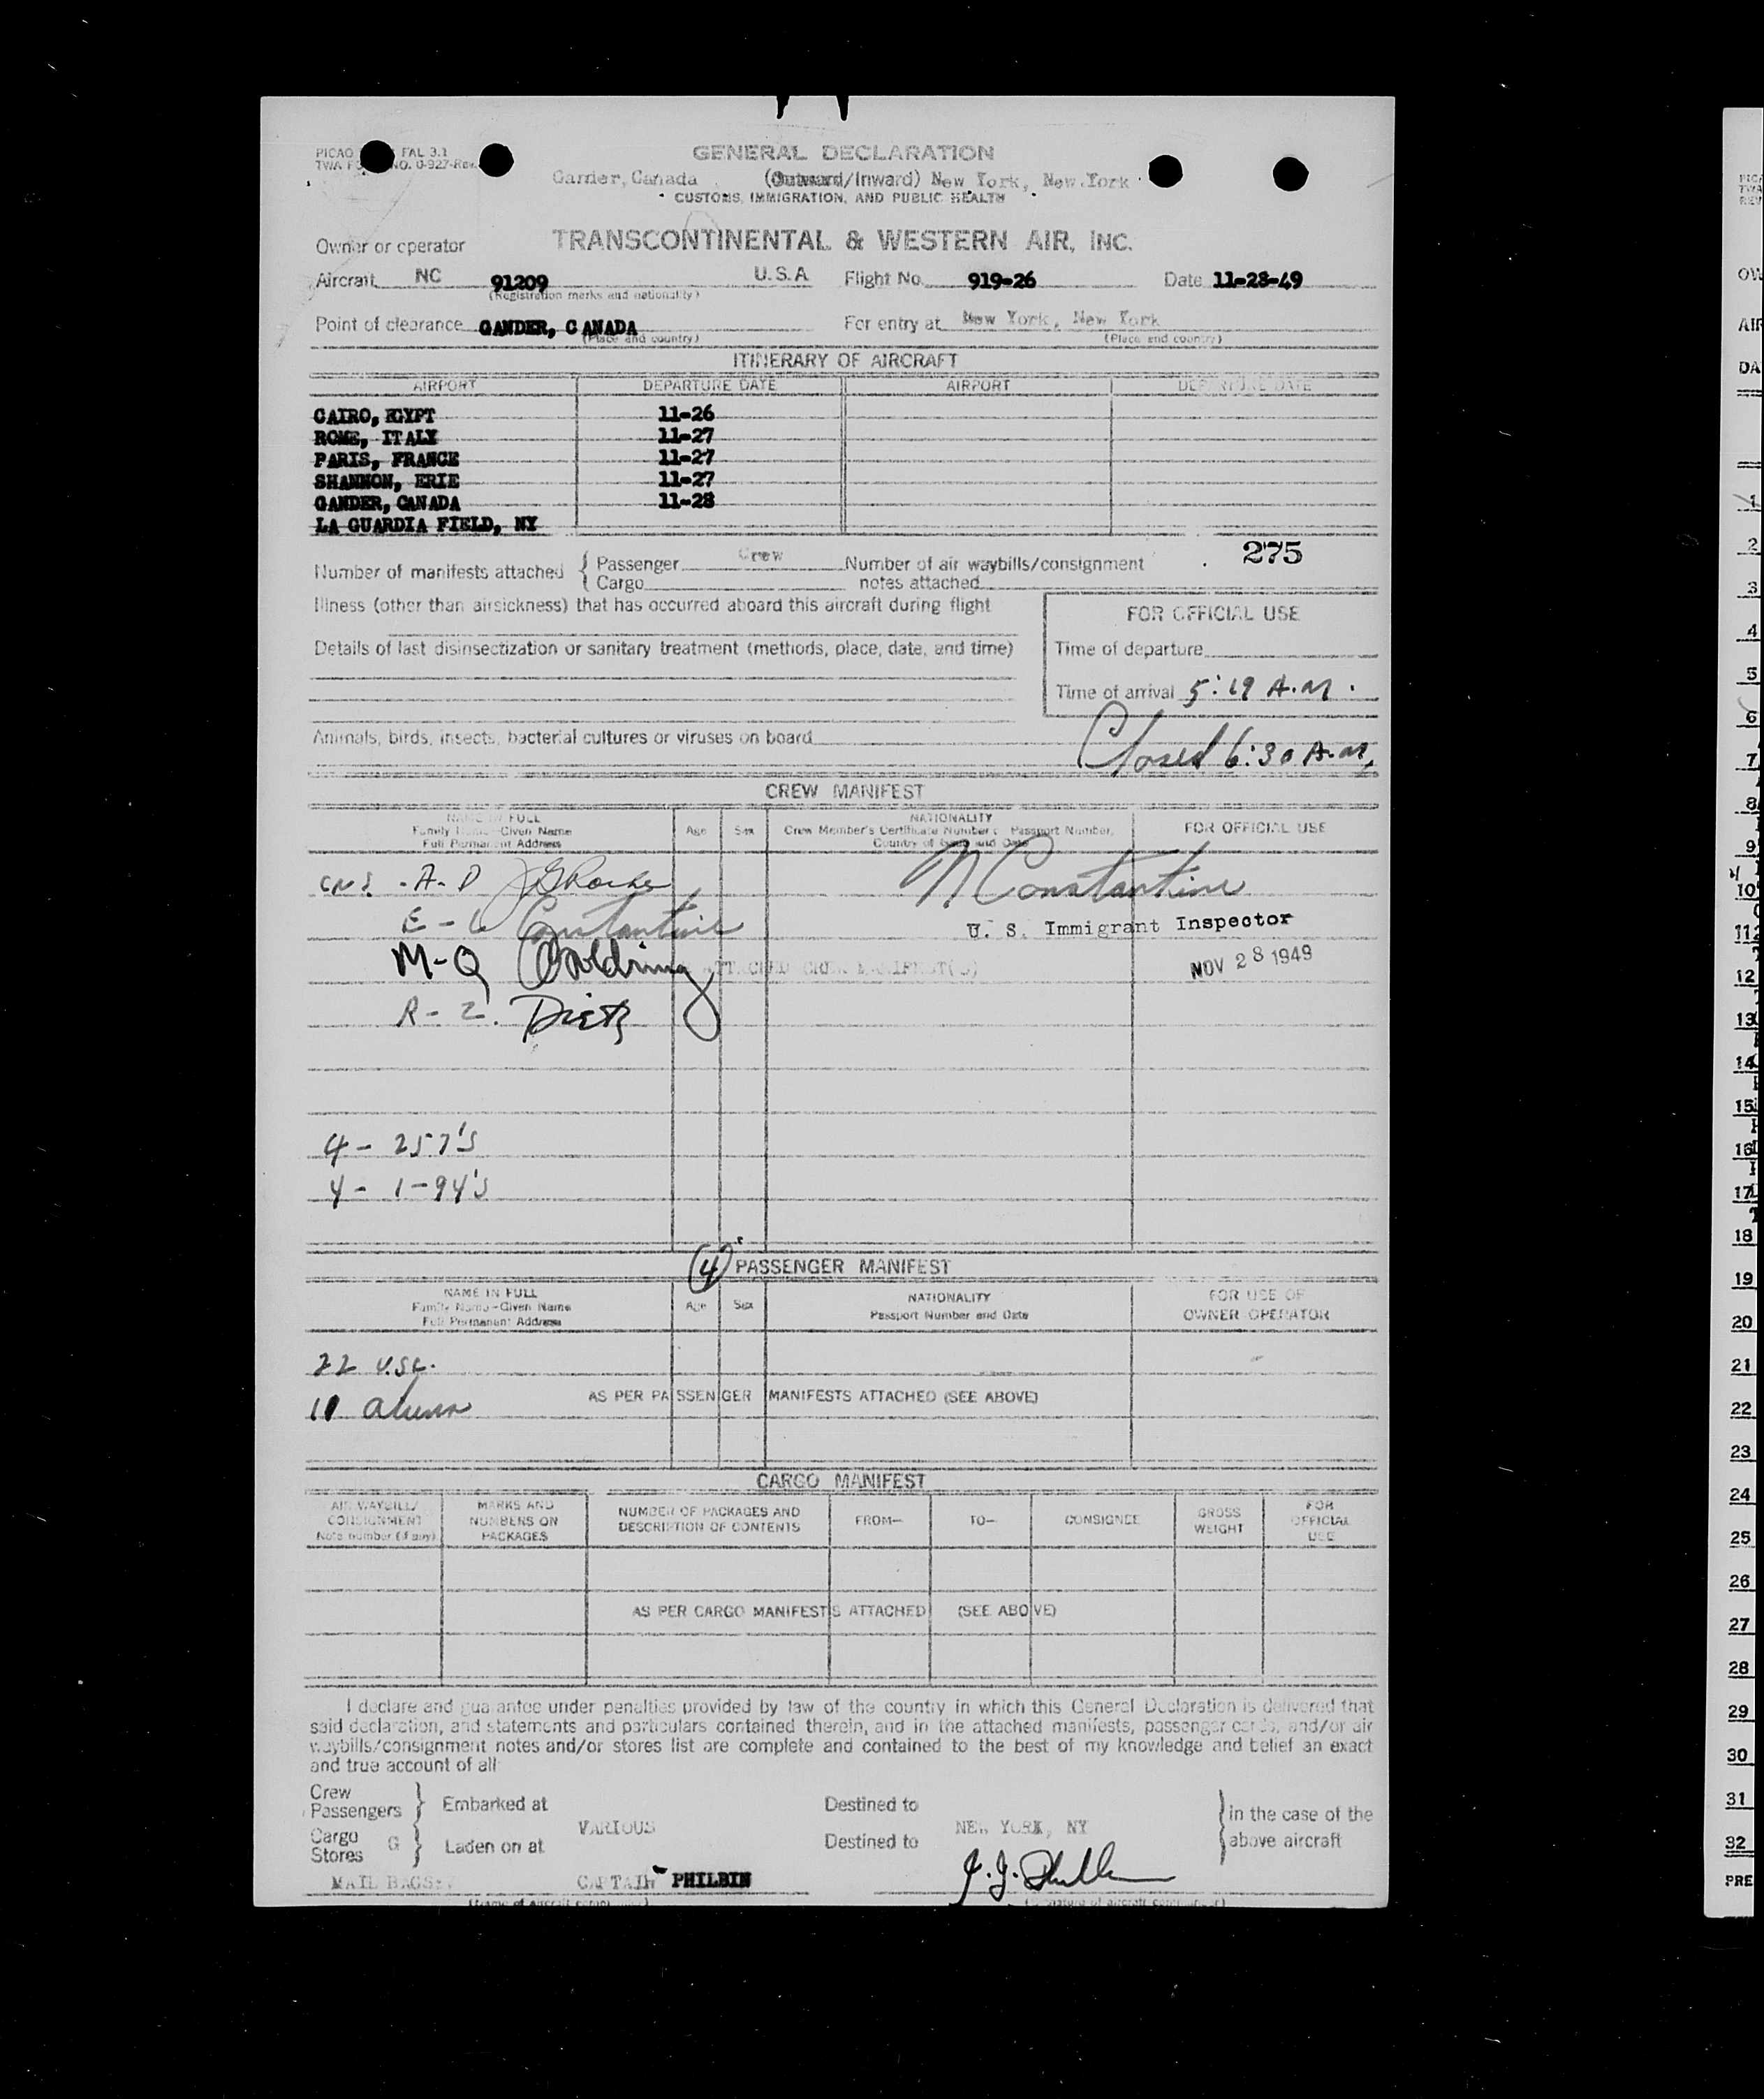 PICAO FAL 3.1
TWA NO. 0-927-Rev.
GENERAL DECLARATION
Gander, Canada (Outward/Inward) New York, New York
CUSTOMS, IMMIGRATION, AND PUBLIC HEALTH
Owner or operator TRANSCONTINENTAL & WESTERN AIR, INC.
Aircraft NC 91209 U.S.A. Flight No. 919-26 Date 11-28-49
(Registration marks and nationality)
Point of clearance GANDER, CANADA For entry at New York, New York
(Place and country) (Place and country)
ITINERARY OF AIRCRAFT
AIRPORT DEPARTURE DATE AIRPORT DEPARTURE DATE
CAIRO, EGYPT 11-26
ROME, ITALY 11-27
PARIS, FRANCE 11-27
SHANNON, ERIE 11-27
GANDER, CANADA 11-28
LA GUARDIA FIELD, NY
275
Number of manifests attached { Passenger Crew Number of air waybills/consignment
Cargo notes attached
Illness (other than airsickness) that has occurred aboard this aircraft during flight
FOR OFFICIAL USE
Details of last disinsectization or sanitary treatment (methods, place, date, and time)
Time of departure
Time of arrival 5:19 A.M.
Animals, birds, insects, bacterial cultures or viruses on board
Closed 6:30 A.M.
CREW MANIFEST
NAME IN FULL
Family Name-Given Name
Full Permanent Address
Age Sex
NATIONALITY
Crew Member's Certificate Number or Passport Number,
Country of Issue and Date
FOR OFFICIAL USE
A-D
N Constantine
E-L Constantine
U. S. Immigrant Inspector
M-Q Goldring
ATTACHED CREW MANIFEST(S)
NOV 28 1949
R-Z. Dietz
4 - 257's
4 - 1-94's
(4) PASSENGER MANIFEST
NAME IN FULL
Family Name-Given Name
Full Permanent Address
Age Sex
NATIONALITY
Passport Number and Date
FOR USE OF
OWNER OPERATOR
22 USC.
11 aliens
AS PER PASSENGER MANIFESTS ATTACHED (SEE ABOVE)
CARGO MANIFEST
AIR WAYBILL/
CONSIGNMENT
Note number (if any)
MARKS AND
NUMBERS ON
PACKAGES
NUMBER OF PACKAGES AND
DESCRIPTION OF CONTENTS
FROM—
TO—
CONSIGNEE
GROSS
WEIGHT
FOR
OFFICIAL
USE
AS PER CARGO MANIFESTS ATTACHED (SEE ABOVE)
I declare and guarantee under penalties provided by law of the country in which this General Declaration is delivered that
said declaration, and statements and particulars contained therein, and in the attached manifests, passenger cards, and/or air
waybills/consignment notes and/or stores list are complete and contained to the best of my knowledge and belief an exact
and true account of all:
Crew
Passengers } Embarked at Destined to
VARIOUS NEW YORK, NY
Cargo G
Stores } Laden on at Destined to
} in the case of the
above aircraft
MAIL BAGS CAPTAIN PHILBIN J.J. Philbin
1
2
3
4
5
6
7
8
9
10
11
12
13
14
15
16
17
18
19
20
21
22
23
24
25
26
27
28
29
30
31
32
PRE